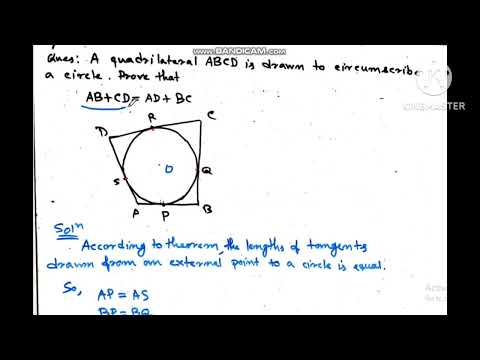 WWW.BANDICAM.COM
Ques: A quadrilateral ABCD is drawn to circumscribe
a circle. Prove that
AB+CD=AD+BC
K
KINEMASTER
R
C
D
O
S
Q
A
P
B
Solⁿ
According to theorem, the lengths of tangents
drawn from an external point to a circle is equal.
So,
AP = AS
BP = BQ